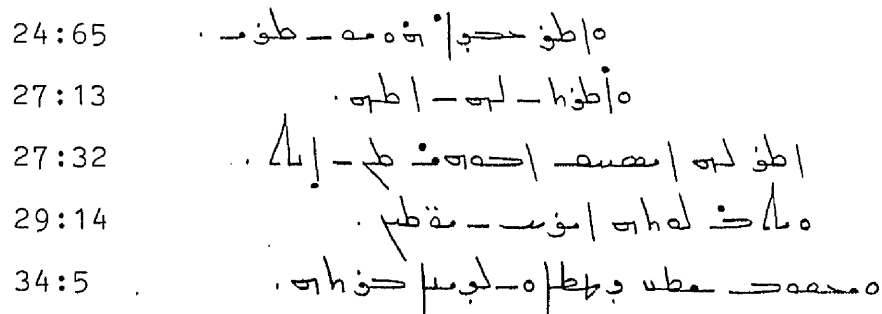 24:65 ܘܐܡܪ ܥܒܕܐ ܗ̇ܘܝܘ – ܡܪܝ .
27:13 ܘܐܡܪܬ – ܠܗ – ܐܡܗ.
27:32 ܐܡܪ ܠܗ ܐܝܣܚܩ ܐܒܘܗܝ ܡܢ – ܐܢܬ ..
29:14 ܘܝܬܒ ܠܘܬܗ ܐܝܪܚ – ܝܘ̈ܡܝܢ .
34:5 ܘܝܥܩܘܒ ܫܡܥ ܕܛܡܐܘ – ܠܕܝܢܐ ܒܪܬܗ.